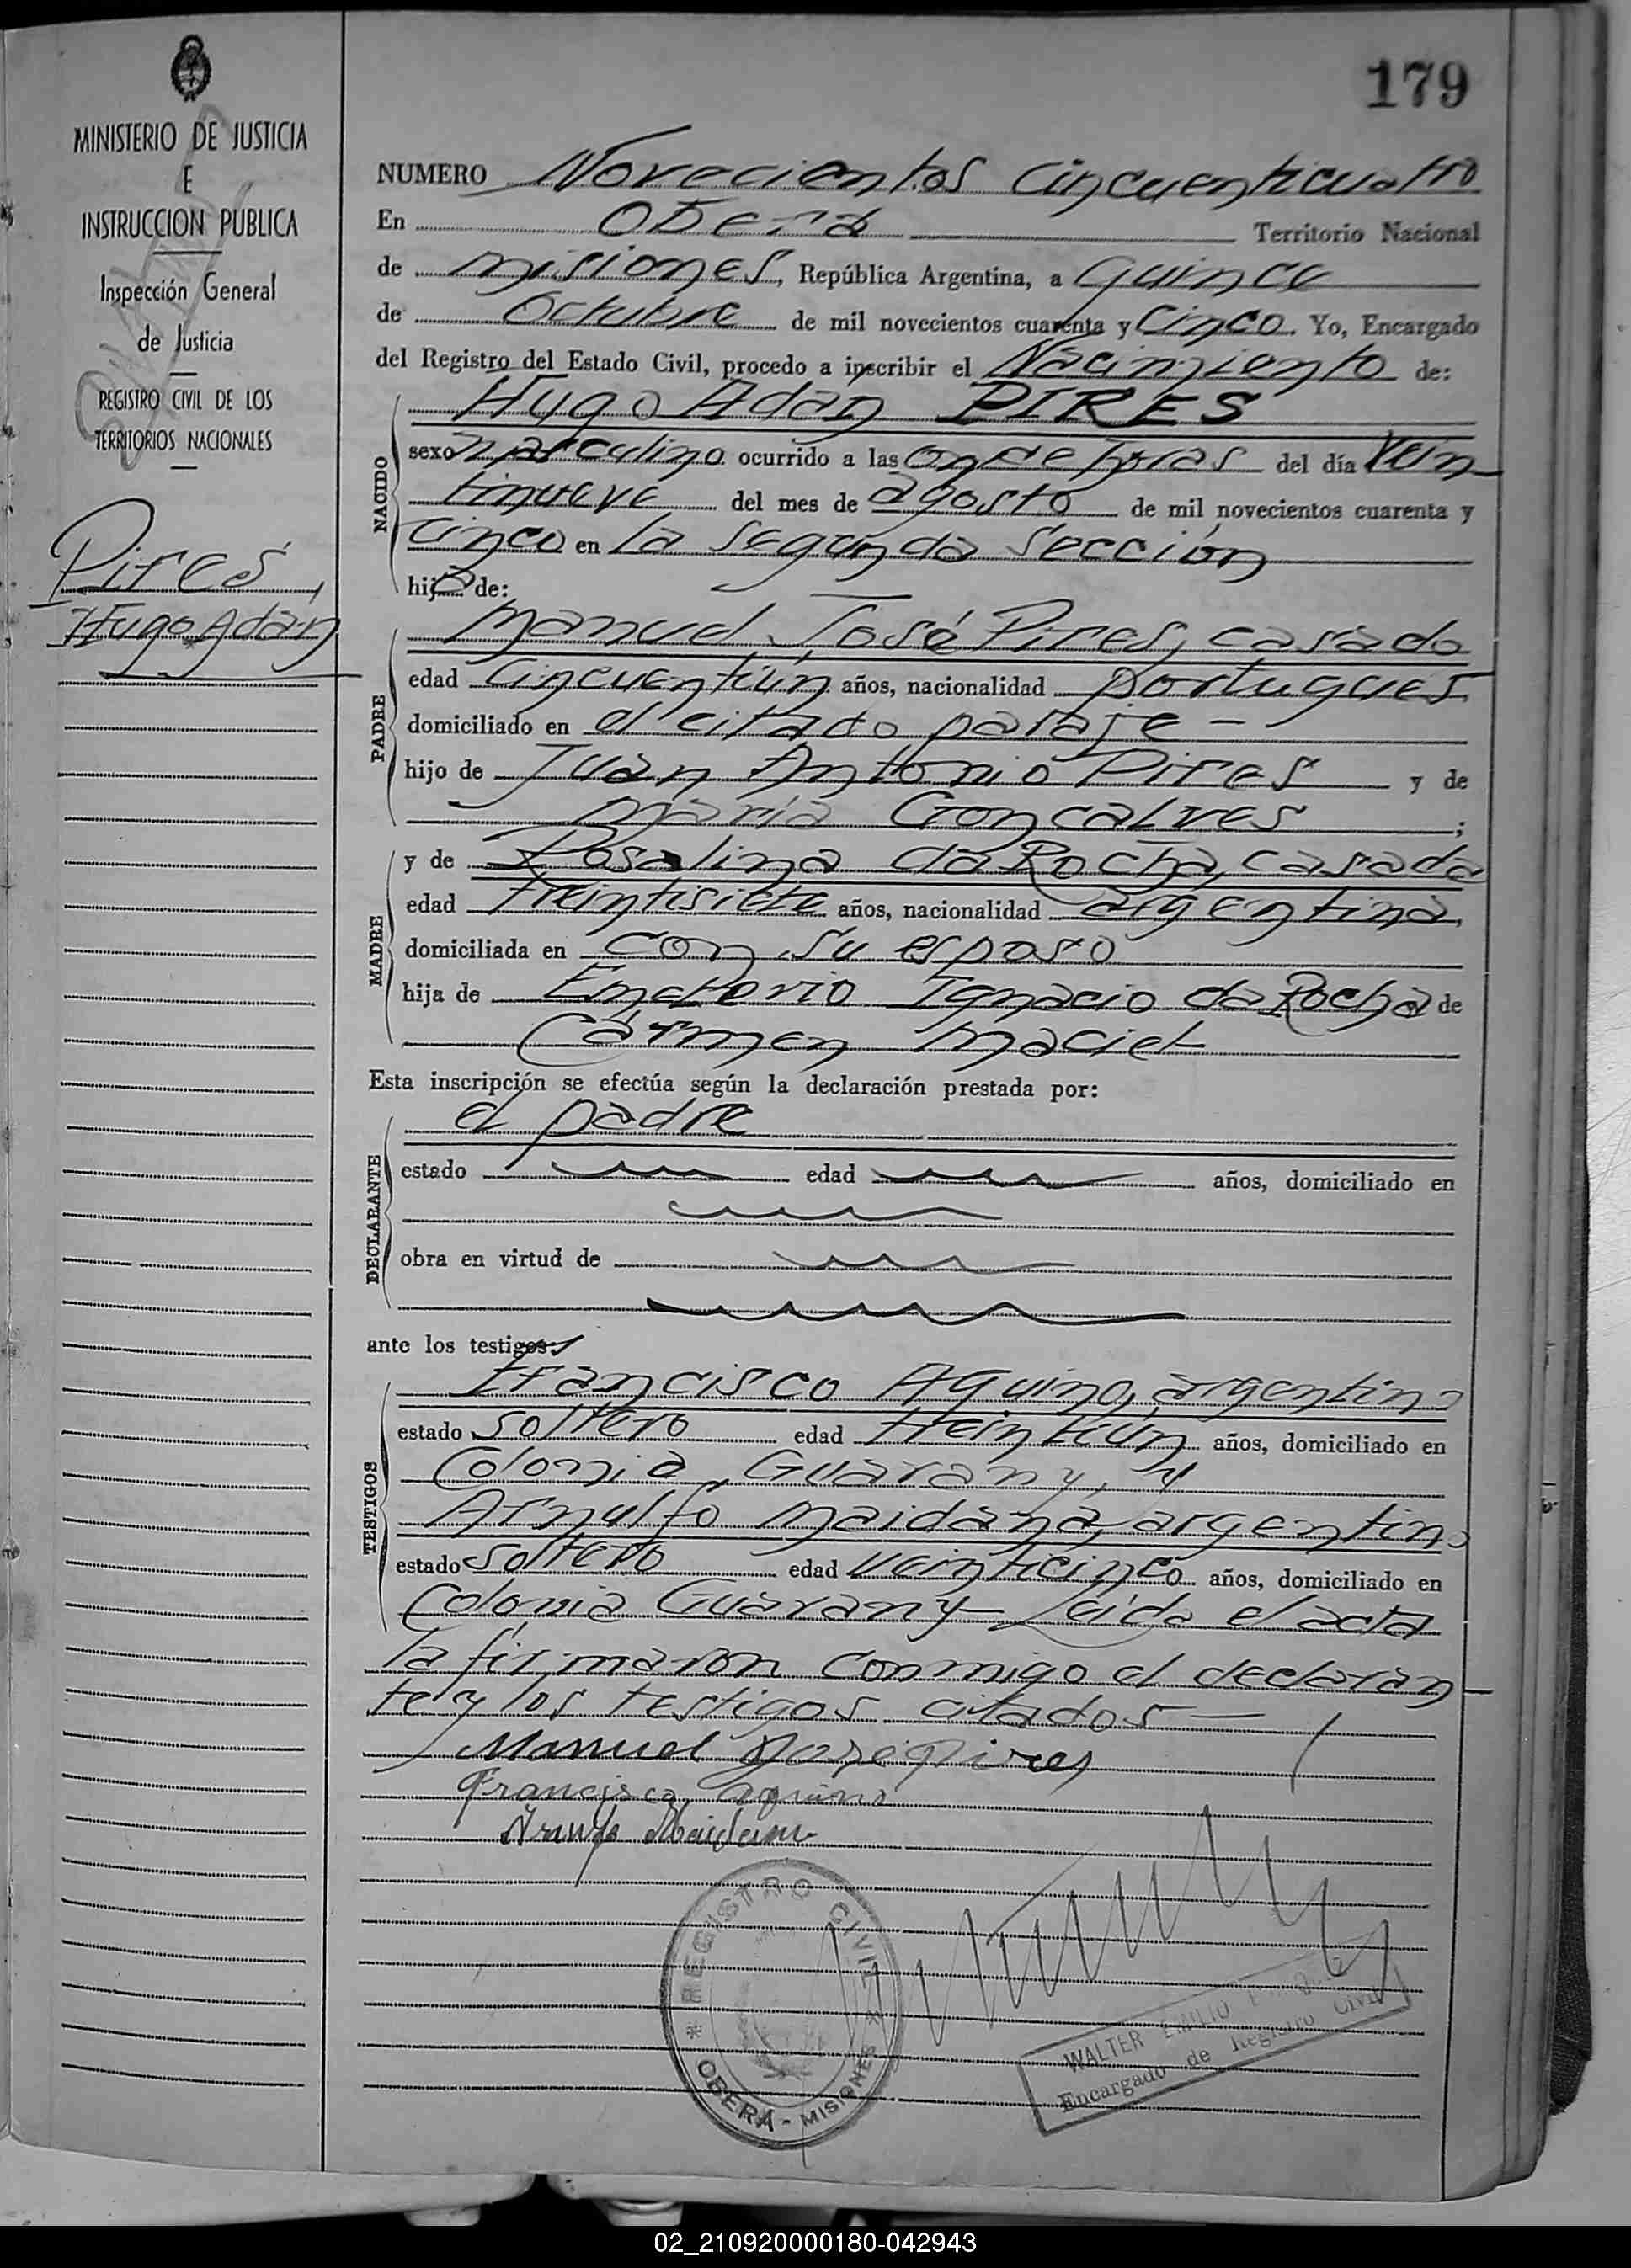 MINISTERIO DE JUSTICIA
E
INSTRUCCION PUBLICA
Inspección General
de Justicia
REGISTRO CIVIL DE LOS
TERRITORIOS NACIONALES
Pires,
Hugo Adán
179
NUMERO Novecientos cincuenticuatro
En Oberá Territorio Nacional
de misiones, República Argentina, a quince
de Octubre de mil novecientos cuarenta y cinco. Yo, Encargado
del Registro del Estado Civil, procedo a inscribir el Nacimiento de:
NACIDO
Hugo Adán PIRES
sexo masculino ocurrido a las once horas del día vein
tinueve del mes de agosto de mil novecientos cuarenta y
cinco en la segunda sección
hijo de:
PADRE
Manuel José Pires, casado
edad cincuentiún años, nacionalidad portugues
domiciliado en el citado paraje -
hijo de Juán Antonio Pires y de
María Gonçalves ;
MADRE
y de Rosalina da Rocha, casada
edad treintisiete años, nacionalidad argentina,
domiciliada en con su esposo
hija de Emeterio Ignacio da Rocha de
Cármen Maciel
Esta inscripción se efectúa según la declaración prestada por:
DECLARANTE
el padre
estado edad años, domiciliado en
obra en virtud de
ante los testigos
TESTIGOS
Francisco Aquino, argentino
estado soltero edad treintiún años, domiciliado en
Colonia Guarany, y
Arnulfo Maidana, argentino
estado soltero edad veinticinco años, domiciliado en
Colonia Guarany- Leída el acta
la firmaron conmigo el declaran
te y los testigos citados -
Manuel José Pires
Francisco Aquino
Arnulfo Maidana
REGISTRO CIVIL
OBERÁ - MISIONES
WALTER EMILIO
Encargado de Registro Civil
02_210920000180-042943